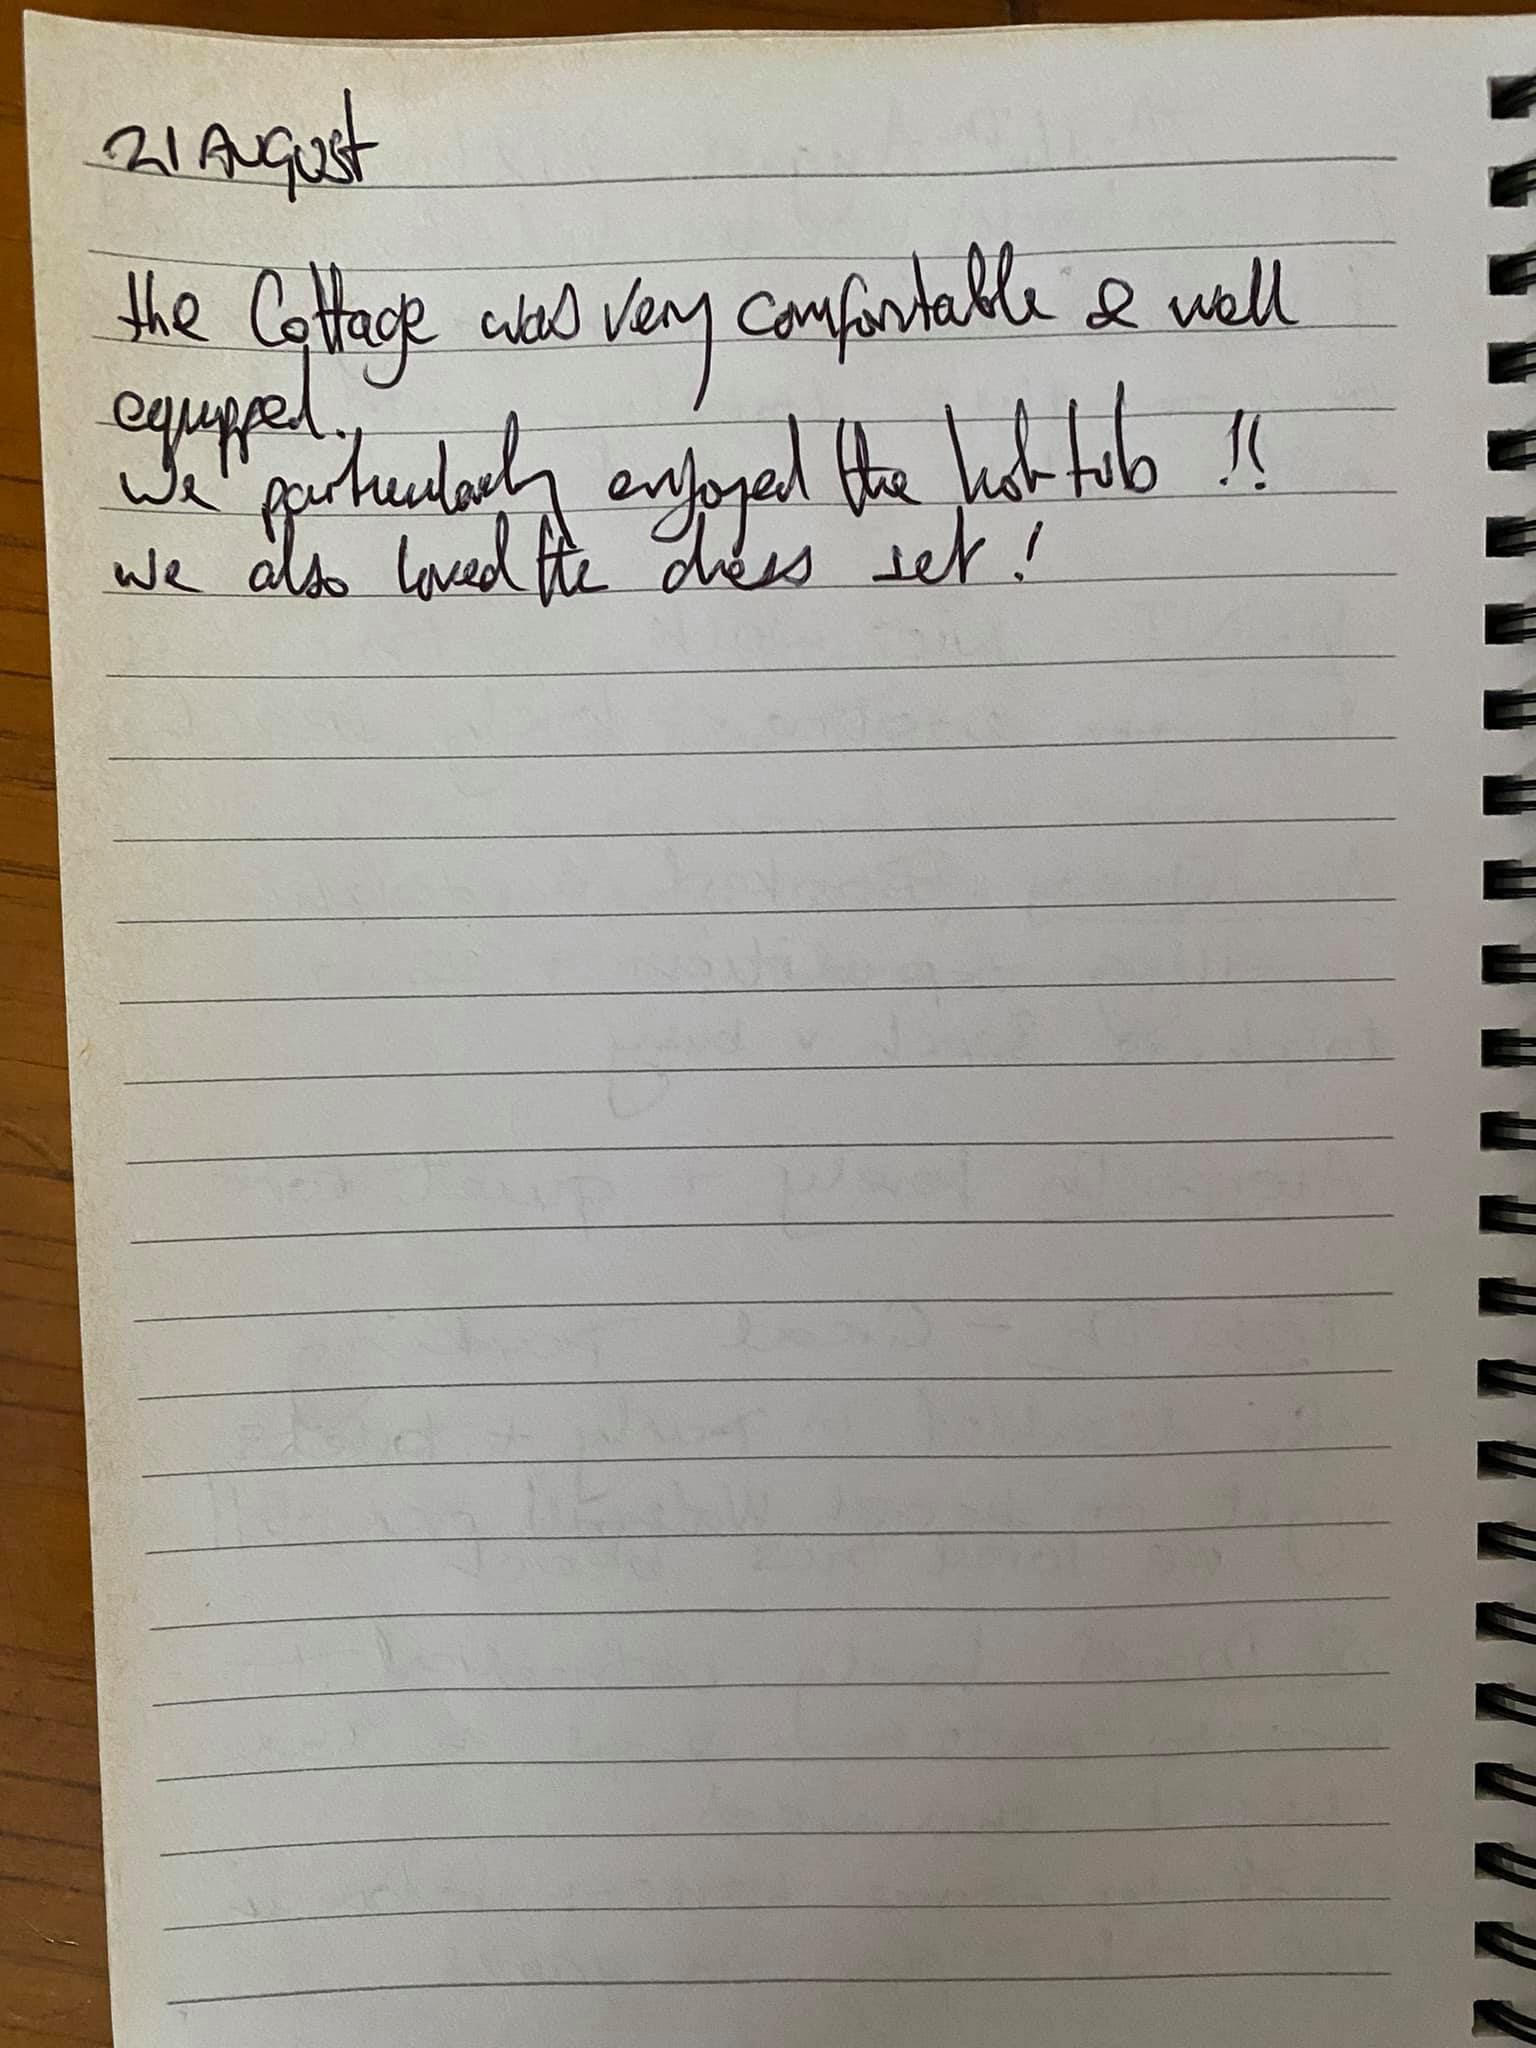 21 August
the Cottage was very comfortable & well
equipped.
we particularly enjoyed the hot tub !!
we also loved the chess set!